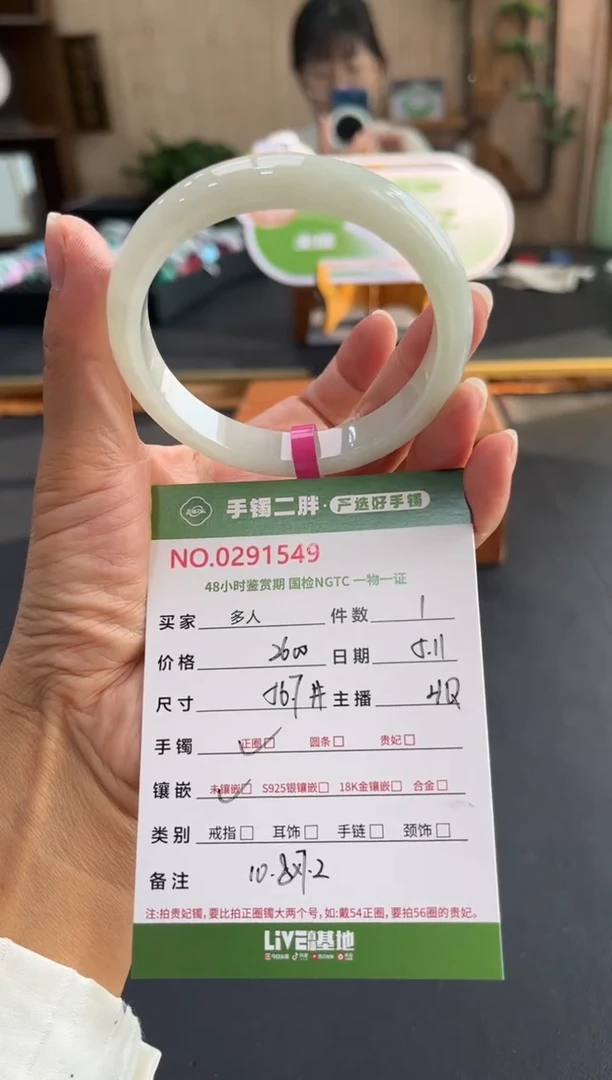 手镯二胖·严选好手镯
NO.0291549
48小时鉴赏期 国检NGTC 一物一证
买家 多人 件数 1
价格 2600 日期 5.11
尺寸 56.7 主播
手镯 正圈 圆条 贵妃
镶嵌 未镶嵌 S925银镶嵌 18K金镶嵌 合金
类别 戒指 耳饰 手链 颈饰
备注 10.8x7.2
注:拍贵妃镯,要比拍正圈镯大两个号,如:戴54正圈,要拍56圈的贵妃。
LiVE 基地